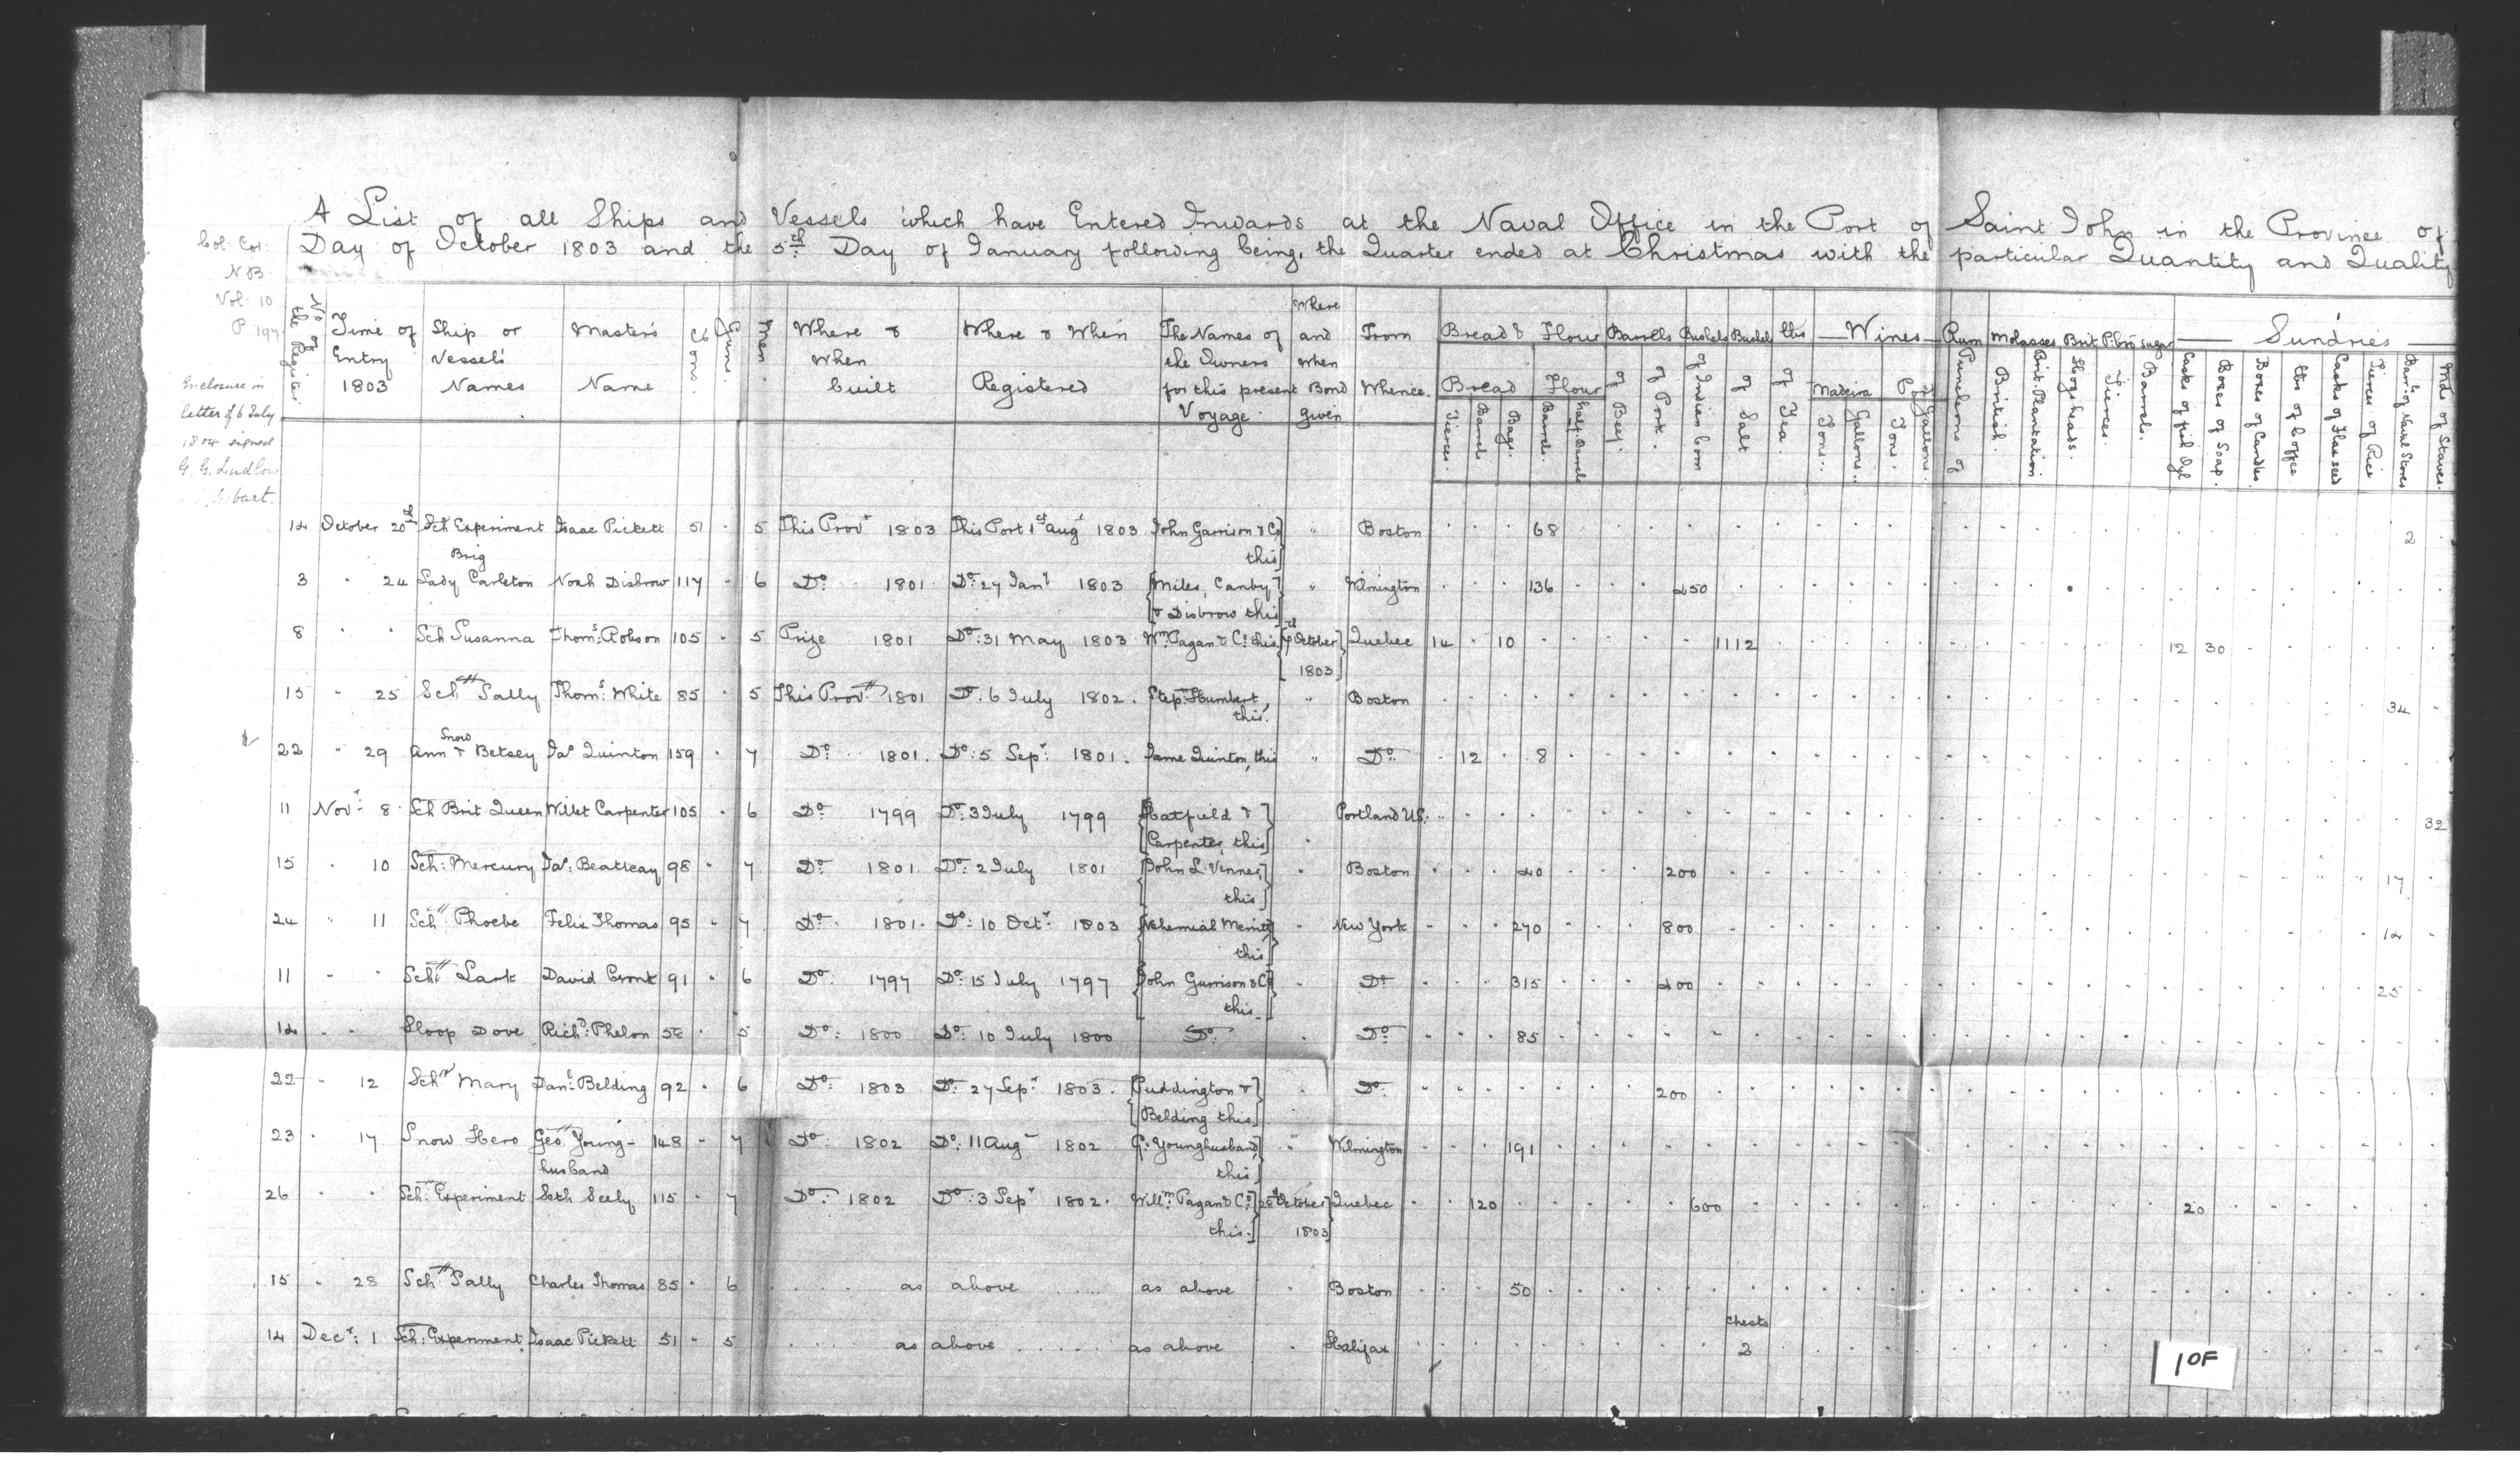 A List of all Ships and Vessels which have Entered Inwards at the Naval Office in the Port of Saint John in the Province of
Day of October 1803 and the 5th Day of January following being, the Quarter ended at Christmas with the particular Quantity and Quality
Col: Cor:
N B.
Vol: 10
P 197
Enclosure in
letter of 6 July
1804 signed
G. G. Ludlow
Hobart.
No of the Register
Time of Entry 1803
Ship or Vessels' Names
Master's Name
Tons.
Guns.
Men.
Where & When built
Where & When Registered
The Names of the Owners for this present Voyage
Where and when Bond given
From Whence.
Bread & Flour
Bread Tierces. Barrels Bags.
Flour Barrels. half Barrels
Barrels of Beef. of Pork.
Bushels of Indian Corn
Bushels of Salt
lbs of Tea.
Wines
Madeira Tons. Gallons.
Port Tons. Gallons.
Rum Puncheons of
Molasses British. Brit. Plantation
Brit. Pltn Sugar Hogsheads. Tierces. Barrels.
Sundries
Casks of fish Oyl
Boxes of Soap.
Boxes of Candles
lbs of Coffee
Casks of Flaxseed
Tierces of Rice
Barrs of Naval Stores
Mds of Staves.
14 October 20th Sch Experiment Isaac Pickett 51 . 5 This Prov 1803 This Port 1st Augt 1803 John Garrison & Co this " Boston 68 2
3 " 24 Brig Lady Carleton Noah Disbrow 117 . 6 Do 1801 Do: 27 Jany 1803 Miles, Canby & Disbrow this " Wilmington 136 450
8 " " Sch Susanna Thoms: Robson 105 . 5 Prize 1801 Do: 31 May 1803 Wm Pagan & Co: this October 1803 Quebec 14 . 10 1112 12 30
15 " 25 Schr Sally Thoms: White 85 . 5 This Prov 1801 Do: 6 July 1802. Stepn Humbert, this. " Boston 34
22 " 29 Snow Ann & Betsey Jas Quinton 159 . 7 Do 1801. Do: 5 Sepr: 1801. Jame Quinton, this " Do 12 . 8
11 Novr: 8 Sch Brit Queen Willet Carpenter 105 . 6 Do 1799 Do: 3 July 1799 Hatfield & Carpenter, this Portland U.S. 32
15 " 10 Sch: Mercury Jas: Beatteay 98 . 7 Do 1801 Do: 2 July 1801 John L. Venner, this " Boston 40 200 17
24 " 11 Schr Phoebe Felix Thomas 95 . 7 Do 1801. Do: 10 Octr 1803 Nehemiah Merritt this " New York 270 800 14
11 " " Schr Lark David Cronk 91 . 6 Do: 1797 Do: 15 July 1797 John Garrison & Co this " Do 315 400 25
14 " " Sloop Dove Richd: Phelon 58 . 5 Do: 1800 Do: 10 July 1800 Do . Do 85
22 " 12 Schr Mary Danl: Belding 92 . 6 Do: 1803 Do: 27 Sepr 1803. Puddington & Belding this . Do: 200
23 " 17 Snow Hero Geo. Younghusband 148 . 7 Do: 1802 Do: 11 Aug 1802 G. Younghusband, this " Wilmington 191
26 " " Sch: Experiment Seth Seely 115 . 7 Do: 1802 Do: 3 Sepr 1802. Willm: Pagan & Co: this. 28 October 1803 Quebec 120 600 20
15 " 28 Schr Sally Charles Thomas 85 . 6 as above as above " Boston 50
14 Decr: 1 Sch: Experiment Isaac Pickett 51 . 5 as above as above . Halifax chests 2
1 OF